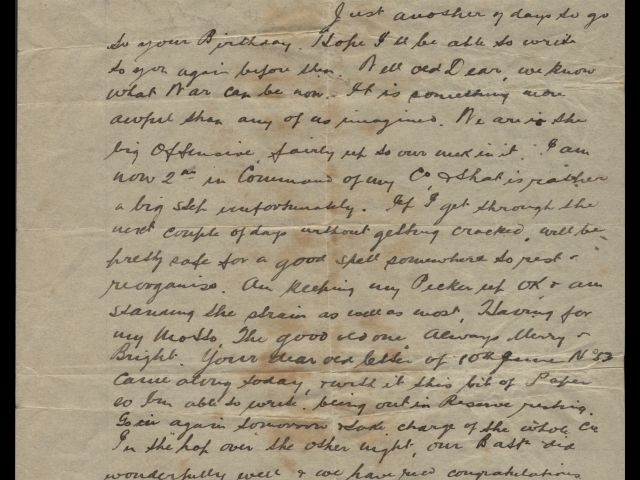 Just another 9 days to go
to your Birthday. Hope I'll be able to write
to you again before then. Well old Dear, we know
what War can be now. It is something more
awful than any of us imagined. We are in the
big Offensive, fairly up to our neck in it. I am
now 2nd in Command of my Co, & that is rather
a big step unfortunately. If I get through the
next couple of days without getting cracked, will be
pretty safe for a good spell somewhere to rest &
reorganise. Am keeping my Pecker up OK & am
standing the strain as well as most, Having for
my Motto, The good old one, Always Merry &
Bright. Your dear old letter of 10th June No 52
came along today, & with it this bit of Paper
so Im able to write. being out in Reserve resting.
Go in again tomorrow & take charge of the whole Co
In the hop over the other night, our Batt did
wonderfully well & we have rec'd congratulations